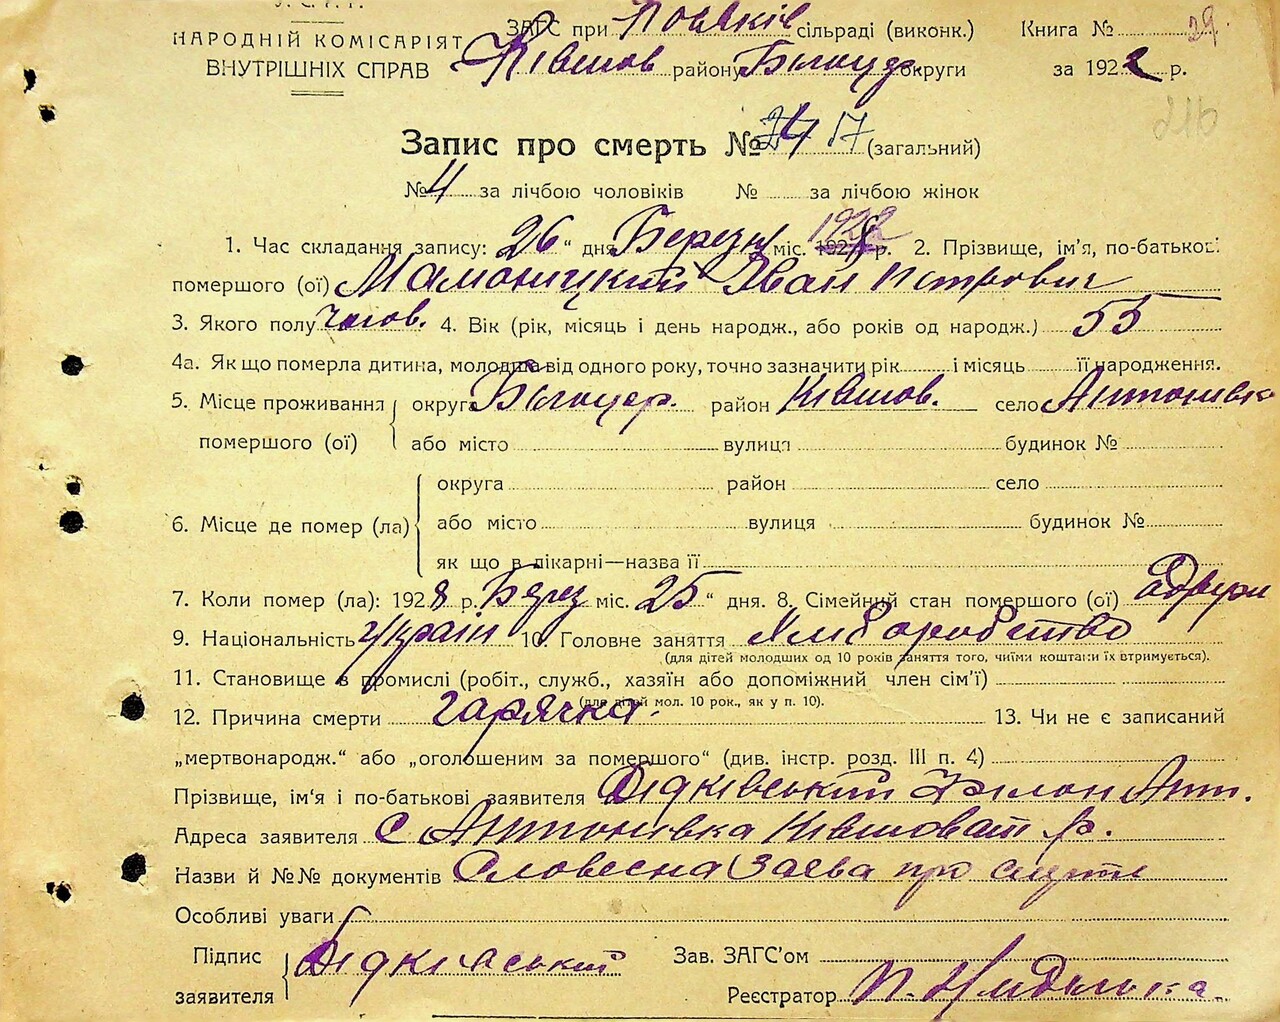 У.С.Р.Р.
НАРОДНІЙ КОМІСАРІЯТ
ВНУТРІШНІХ СПРАВ
ЗАГС при сільраді (виконк.) Книга № 29
Ківшов району Білоцер. округи за 1928 р.
216
Запис про смерть № 17 (загальний)
№ 4 за лічбою чоловіків № за лічбою жінок
1. Час складання запису: 26 " дня Березня міс. 1928 р. 2. Прізвище, ім'я, по-батькові
помершого (ої) Іван Петрович
3. Якого полу чолов. 4. Вік (рік, місяць і день народж., або років од народж.) 55
4а. Як що померла дитина, молодша від одного року, точно зазначити рік і місяць її народження.
5. Місце проживання округа Білоцер. район Ківшов. село Антонівка
помершого (ої) або місто вулиця будинок №
округа район село
6. Місце де помер (ла) або місто вулиця будинок №
як що в лікарні—назва її
7. Коли помер (ла): 1928 р. Берез міс. 25 " дня. 8. Сімейний стан помершого (ої)
9. Національність Україн 10. Головне заняття Хлiборобство
(для дітей молодших од 10 років заняття того, чиїми коштами їх втримується).
11. Становище в промислі (робіт., служб., хазяїн або допоміжний член сім'ї)
(для дітей мол. 10 рок., як у п. 10).
12. Причина смерти гарячка. 13. Чи не є записаний
„мертвонародж.“ або „оголошеним за помершого“ (див. інстр. розд. III п. 4)
Прізвище, ім'я і по-батькові заявителя Дідківський Филон Ант.
Адреса заявителя с Антонівка Ківшоват р.
Назви й №№ документів Словесна заєва про смерть
Особливі уваги
Підпис заявителя Дідківський Зав. ЗАГС'ом
Реєстратор